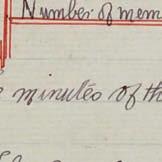 Number of mem
minutes of th